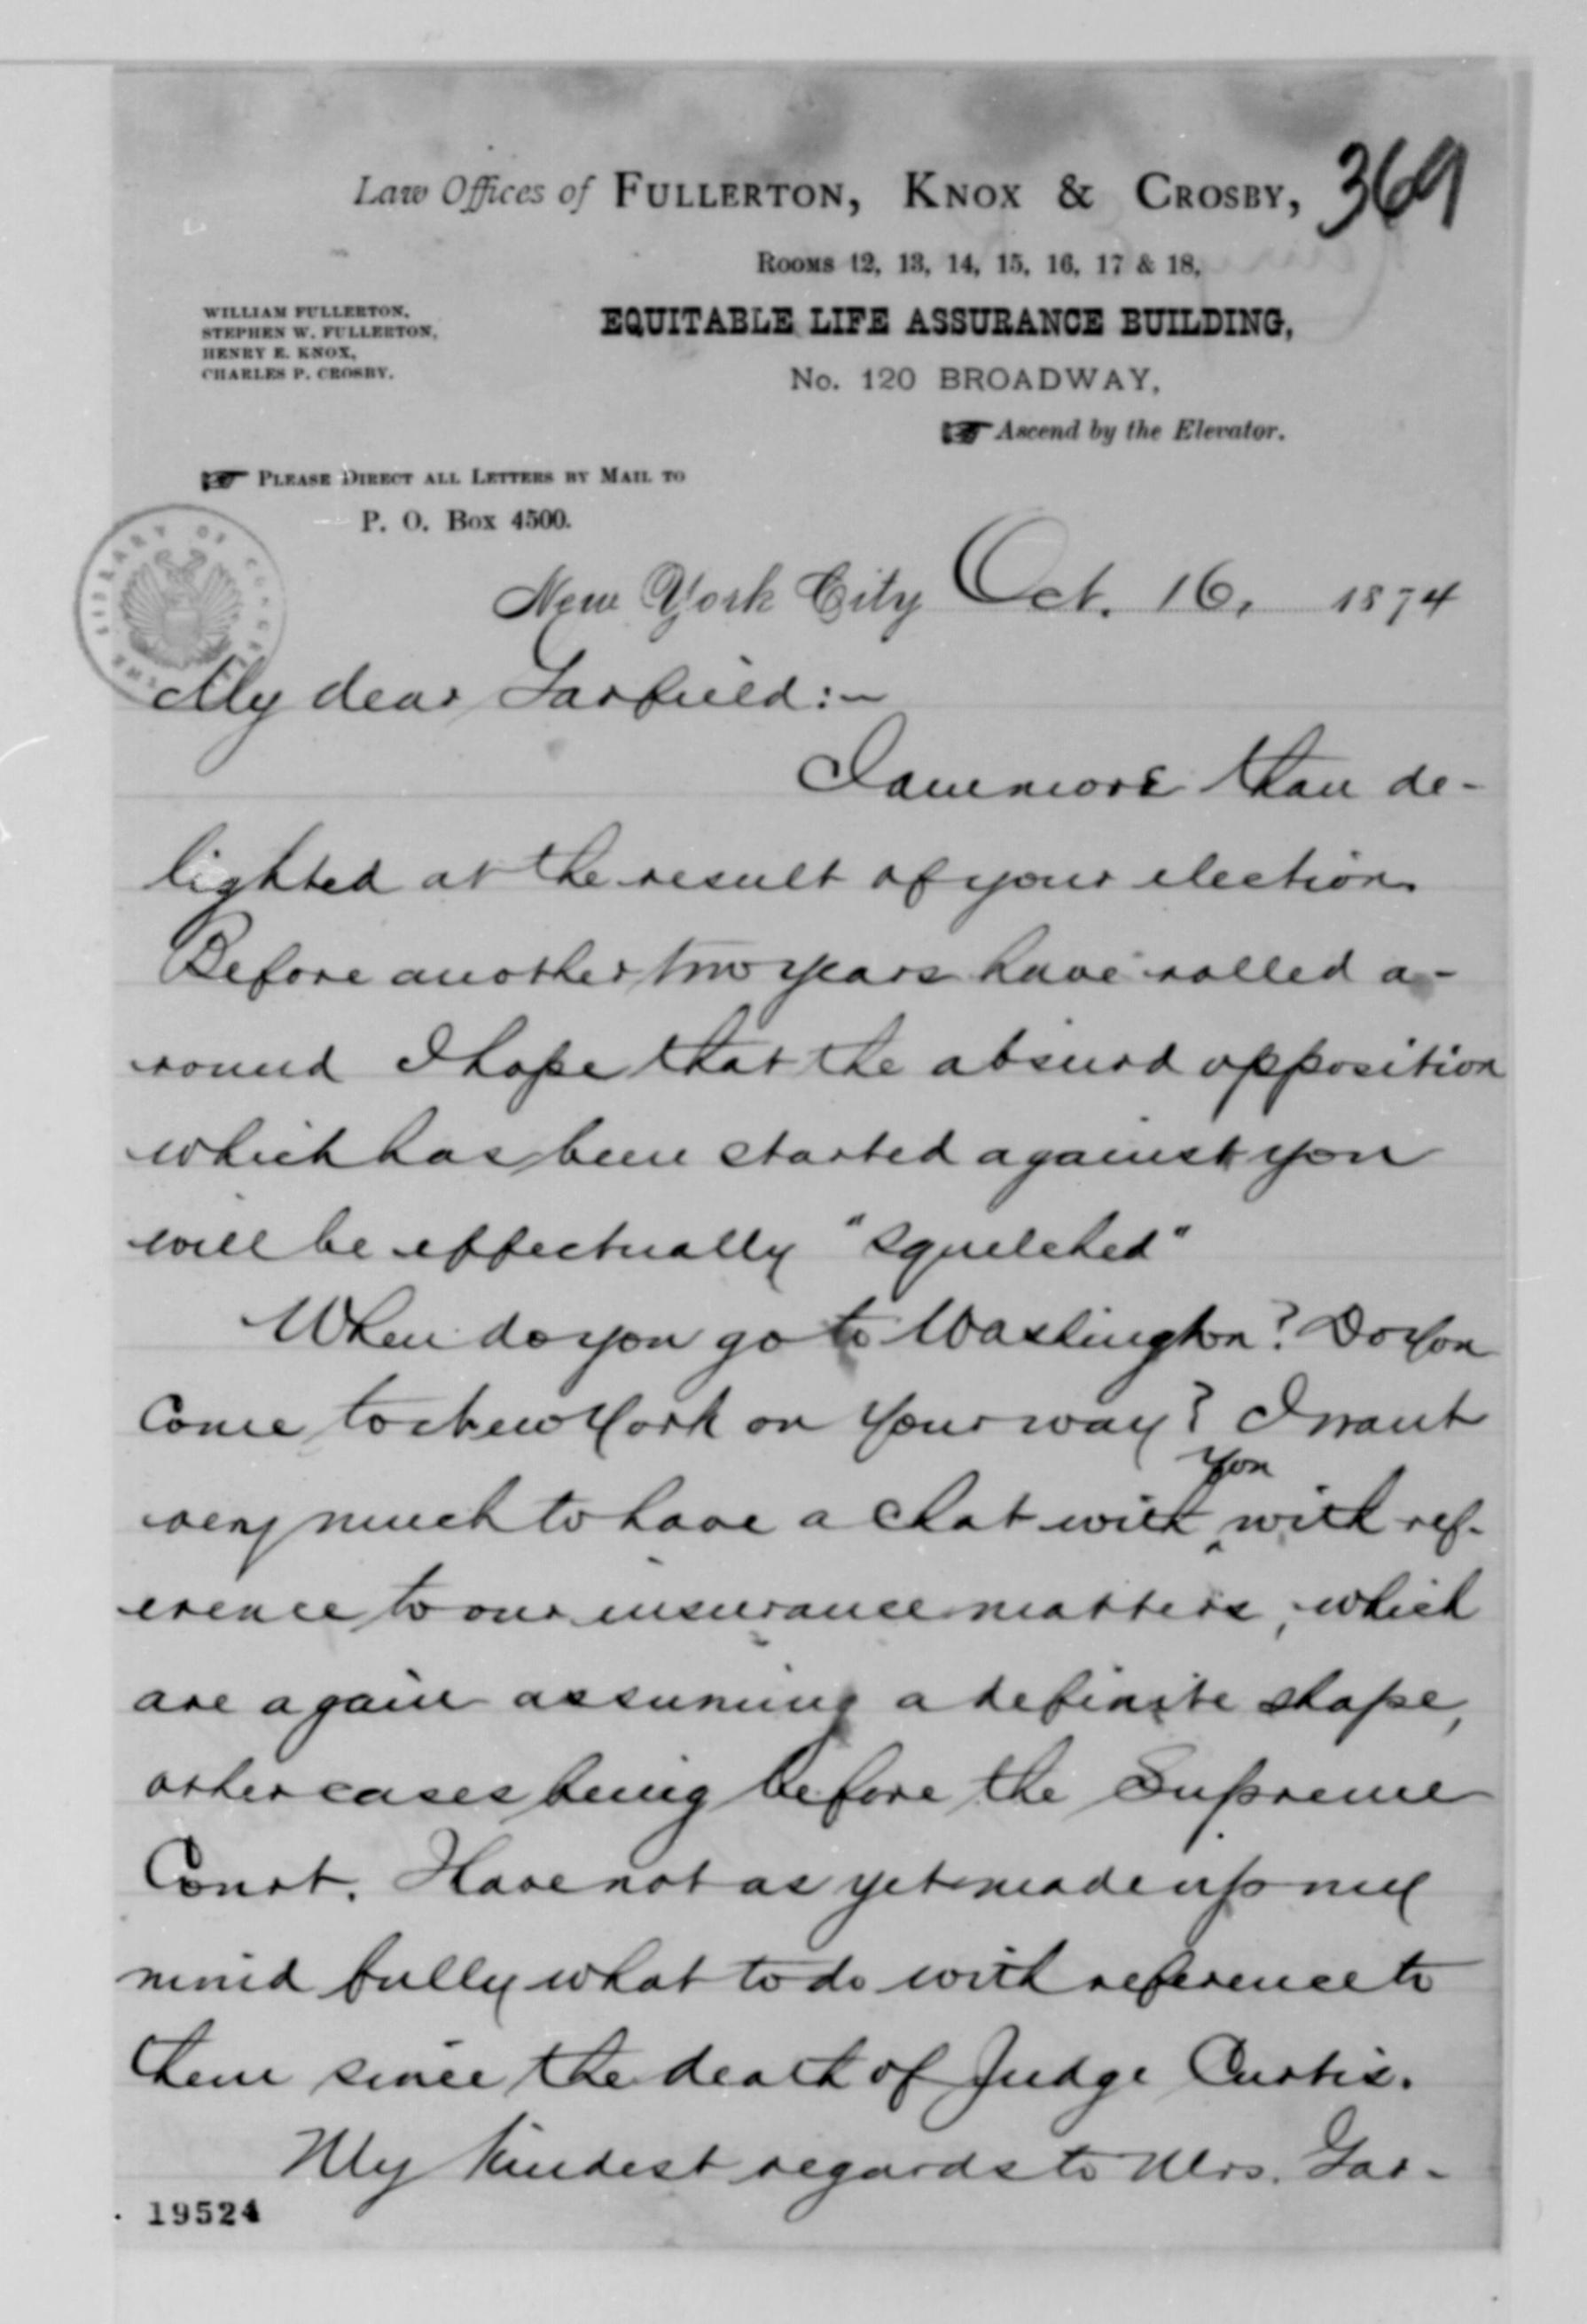 Law Offices of FULLERTON, KNOX & CROSBY,
369
ROOMS 12, 13, 14, 15, 16, 17 & 18,
WILLIAM FULLERTON,
STEPHEN W. FULLERTON,
HENRY E. KNOX,
CHARLES P. CROSBY.
EQUITABLE LIFE ASSURANCE BUILDING,
No. 120 BROADWAY,
☛ Ascend by the Elevator.
☛ PLEASE DIRECT ALL LETTERS BY MAIL TO
P. O. Box 4500.
THE LIBRARY OF CONGRESS
New York City Oct. 16, 1874
My dear Garfield:-
I am more than de-
lighted at the result of your election.
Before another two years have rolled a-
round I hope that the absurd opposition
which has been started against you
will be effectually "squelched"
When do you go to Washington? Do you
come to New York on your way? I want
you
very much to have a chat with ^ with ref-
erence to our insurance matters, which
are again assuming a definite shape,
other cases being before the Supreme
Court. Have not as yet made up my
mind fully what to do with reference to
them since the death of Judge Curtis.
My kindest regards to Mrs. Gar-
19524